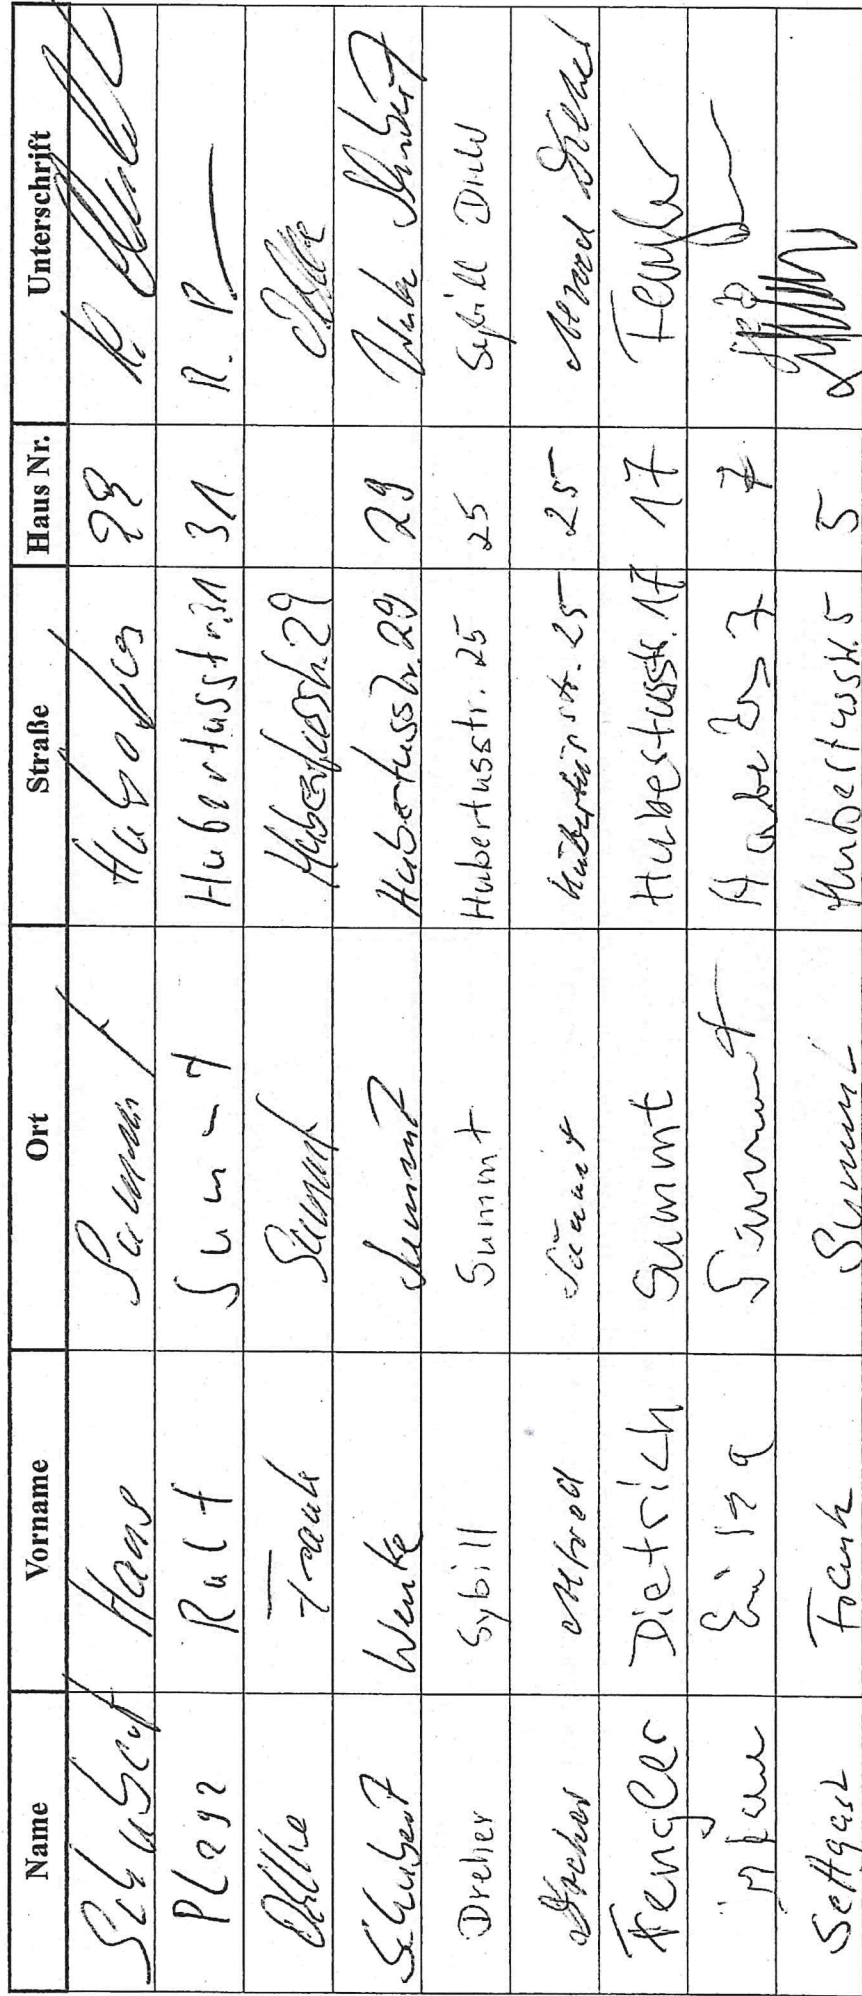 Name Vorname Ort Straße Haus Nr. Unterschrift
Schubert Hans Summt 29
Ralf Summt Hubertusstr. 31 31 R. P.
Frank Summt Hubertusstr. 29
Schubert Wenke Summt Hubertusstr. 29 29 Wenke Schubert
Dreher Sybill Summt Hubertusstr. 25 25 Sybill
Dreher Alfred Summt Hubertusstr. 25 25
Fengler Dietrich Summt Hubertusstr. 17 17 Fengler
Summt 7
Settgast Frank Summt Hubertusstr. 5 5